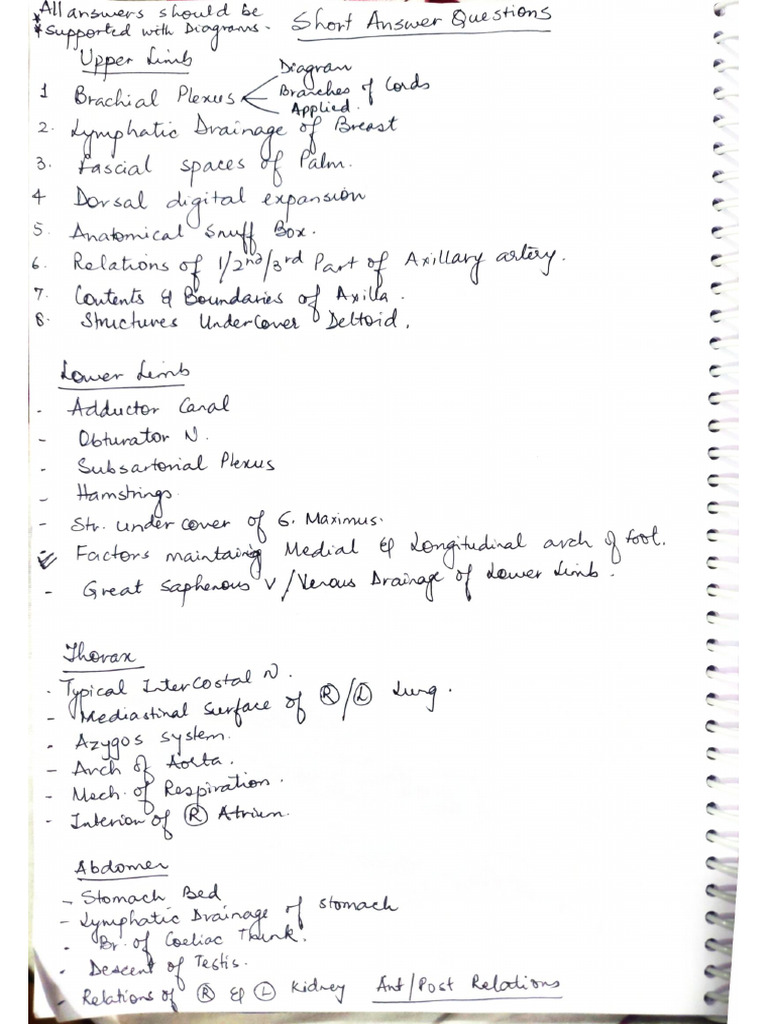 * All answers should be
* supported with Diagrams.
Short Answer Questions
Upper Limb
1 Brachial Plexus
Diagram
Branches of Cords
Applied.
2. Lymphatic Drainage of Breast
3. Fascial spaces of Palm.
4 Dorsal digital expansion
5. Anatomical Snuff Box.
6. Relations of 1/2nd/3rd Part of Axillary artery.
7. Contents & Boundaries of Axilla.
8. Structures UnderCover Deltoid.
Lower Limb
- Adductor Canal
- Obturator N.
- Subsartorial Plexus
- Hamstrings.
- Str. under cover of G. Maximus.
Factors maintaing Medial & Longitudinal arch of foot.
- Great Saphenous V / Venous Drainage of Lower Limb.
Thorax
- Typical InterCostal N.
- Mediastinal Surface of Ⓡ/Ⓛ Lung.
- Azygos system.
- Arch of Aorta.
- Mech. of Respiration.
- Interior of Ⓡ Atrium.
Abdomen
- Stomach Bed
- Lymphatic Drainage of stomach
- Br. of Coeliac Trunk.
- Descent of Testis.
- Relations of Ⓡ & Ⓛ Kidney Ant/Post Relations